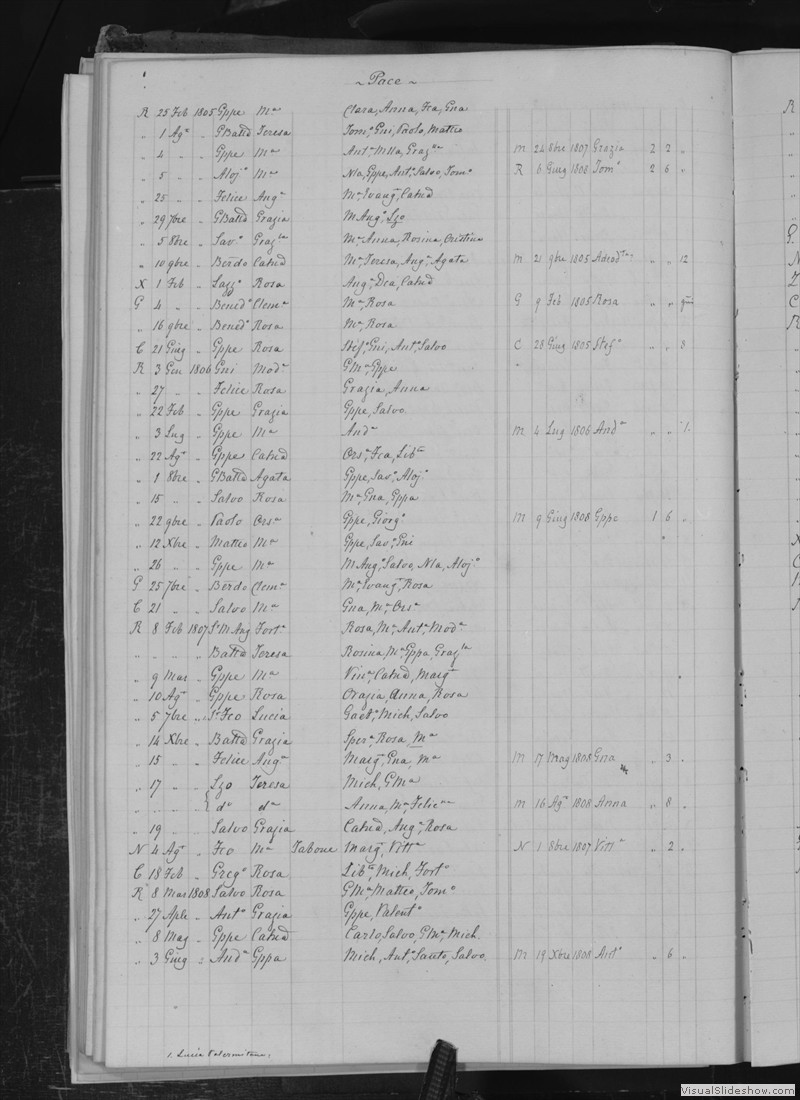 ~ Pace ~
R 25 Feb 1805 Gppe Mª Clara, Anna, Fca, Gna
„ 1 Agº „ GBattª Teresa Tomº, Gni, Paolo, Matteo
„ 4 „ „ Gppe Mª Antº, Mlla, Grazla M 24 8bre 1807 Grazia 2 2 „
„ 5 „ „ Alojº Mª Nla, Gppe, Antº, Salvo, Tomº R 6 Giug 1808 Tomº 2 6 „
„ 25 „ „ Felice Angª Mª, Evangª, Catnª
„ 29 7bre „ GBattª Grazia M Angº, Lzo
„ 5 8bre „ Savº Grazla Mª Anna, Rosina, Cristina
„ 10 9bre „ Berdo Catnª Mª, Teresa, Angª, Agata M 21 9bre 1805 „ „ 12
X 1 Feb „ Lazº Rosa Angº, Dca, Catnª
G 4 „ „ Benedº Clemª Mª, Rosa G 9 Feb 1805 Rosa „ „
„ 16 9bre „ Benedº Rosa Mª, Rosa
C 21 Giug „ Gppe Rosa Stefº, Gni, Antº, Salvo C 28 Giug 1805 Stefº „ „ 8
R 3 Gen 1806 Gni Modª GMª, Gppe
„ 27 „ „ Felice Rosa Grazia, Anna
„ 22 Feb „ Gppe Grazia Gppe, Salvo
„ 3 Lug „ Gppe Mª Andª M 4 Lug 1806 Andª „ „ 1.
„ 22 Agº „ Gppe Catnª Orsª, Fca, Libª
„ 1 8bre „ GBattª Agata Gppe, Savº, Alojº
„ 15 „ „ Salvo Rosa Mª, Gna, Gppa
„ 22 9bre „ Paolo Orsª Gppe, Giorgº M 9 Giug 1808 Gppe 1 6 „
„ 12 Xbre „ Matteo Mª Gppe, Savº, Gni
„ 26 „ „ Gppe Mª M Angº, Salvo, Nla, Alojº
G 25 7bre „ Berdo Clemª Mª, Evangª, Rosa
C 21 „ „ Salvo Mª Gna, Mª, Orsª
R 8 Feb 1807 Sr M Ang Fortª Rosa, Mª, Antª, Modª
„ „ „ „ Battª Teresa Rosina, Mª, Gppa, Grazla
„ 9 Mar „ Gppe Mª Vinª, Catnª, Margª
„ 10 Agº „ Gppe Rosa Orazia, Anna, Rosa
„ 5 7bre „ Sr Fco Lucia Gaetº, Mich, Salvo
„ 14 Xbre „ Battª Grazia Sperª, Rosa, Mª
„ 15 „ „ Felice Angª Margª, Gna, Mª M 17 Mag 1808 Gna „ 3 „
„ 17 „ „ Lzo Teresa Mich, GMª
„ „ „ „ dº dª Anna, Mª, Felicna M 16 Agº 1808 Anna „ 8 „
„ 19 „ „ Salvo Grazia Catnª, Angª, Rosa
N 4 Agº „ Fco Mª Tabone Margª, Vittª N 1 8bre 1807 Vittª „ 2 „
C 18 Feb „ Gregº Rosa Libª, Mich, Fortº
R 8 Mar 1808 Salvo Rosa GMª, Matteo, Tomº
„ 27 Aple „ Antº Grazia Gppe, Valentº
„ 8 Mag „ Gppe Catnª Carlo, Salvo, GMª, Mich.
„ 3 Giug „ Andª Gppa Mich, Antº, Santo, Salvo M 19 Xbre 1808 Antº „ 6 „
1. Lucia Palermitana.
VisualSlideshow.com